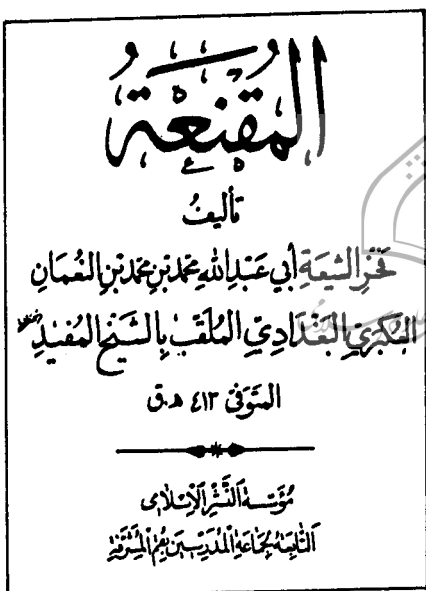 المُقنِعَة
تأليفُ
فَخرِ الشّيعَةِ أبي عَبدِاللهِ مُحَمَّدِبنِ مُحَمَّدِبنِ النُّعمَانِ
العُكبَرِيّ البَغدَادِيّ المُلَقَّبِ بِالشَّيخِ المُفيدِ
المتَوَفّى ٤١٣ ه‍.ق
مُؤَسَّسَةُ النَّشرِ الإسلامي
التّابِعَة لِجَمَاعَةِ المُدَرّسينَ بِقُم المُشَرَّفَة